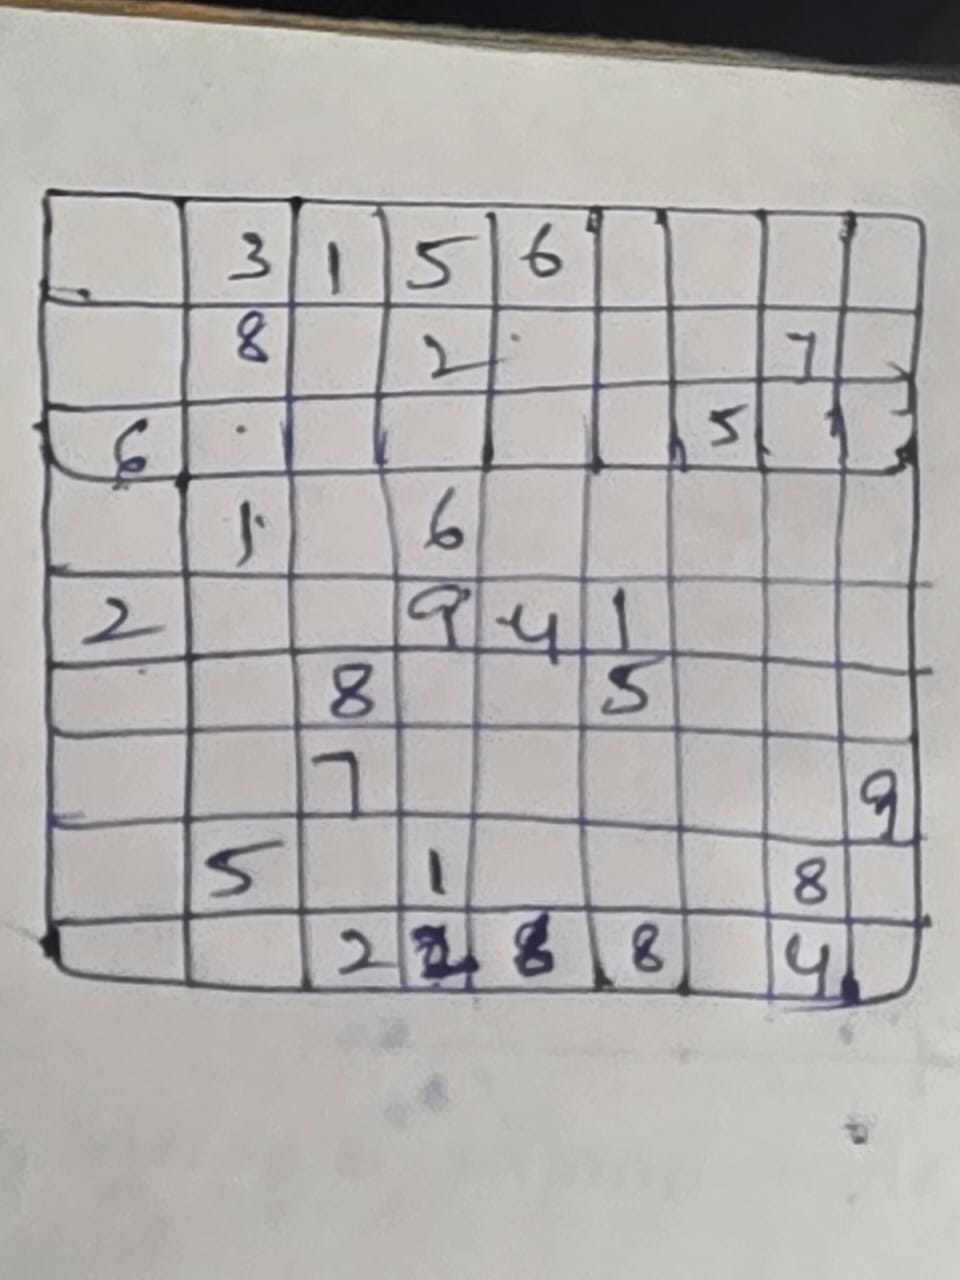 3 1 5 6
8 2 7
6 5
1 6
2 9 4 1
8 5
7 9
5 1 8
2 8 4